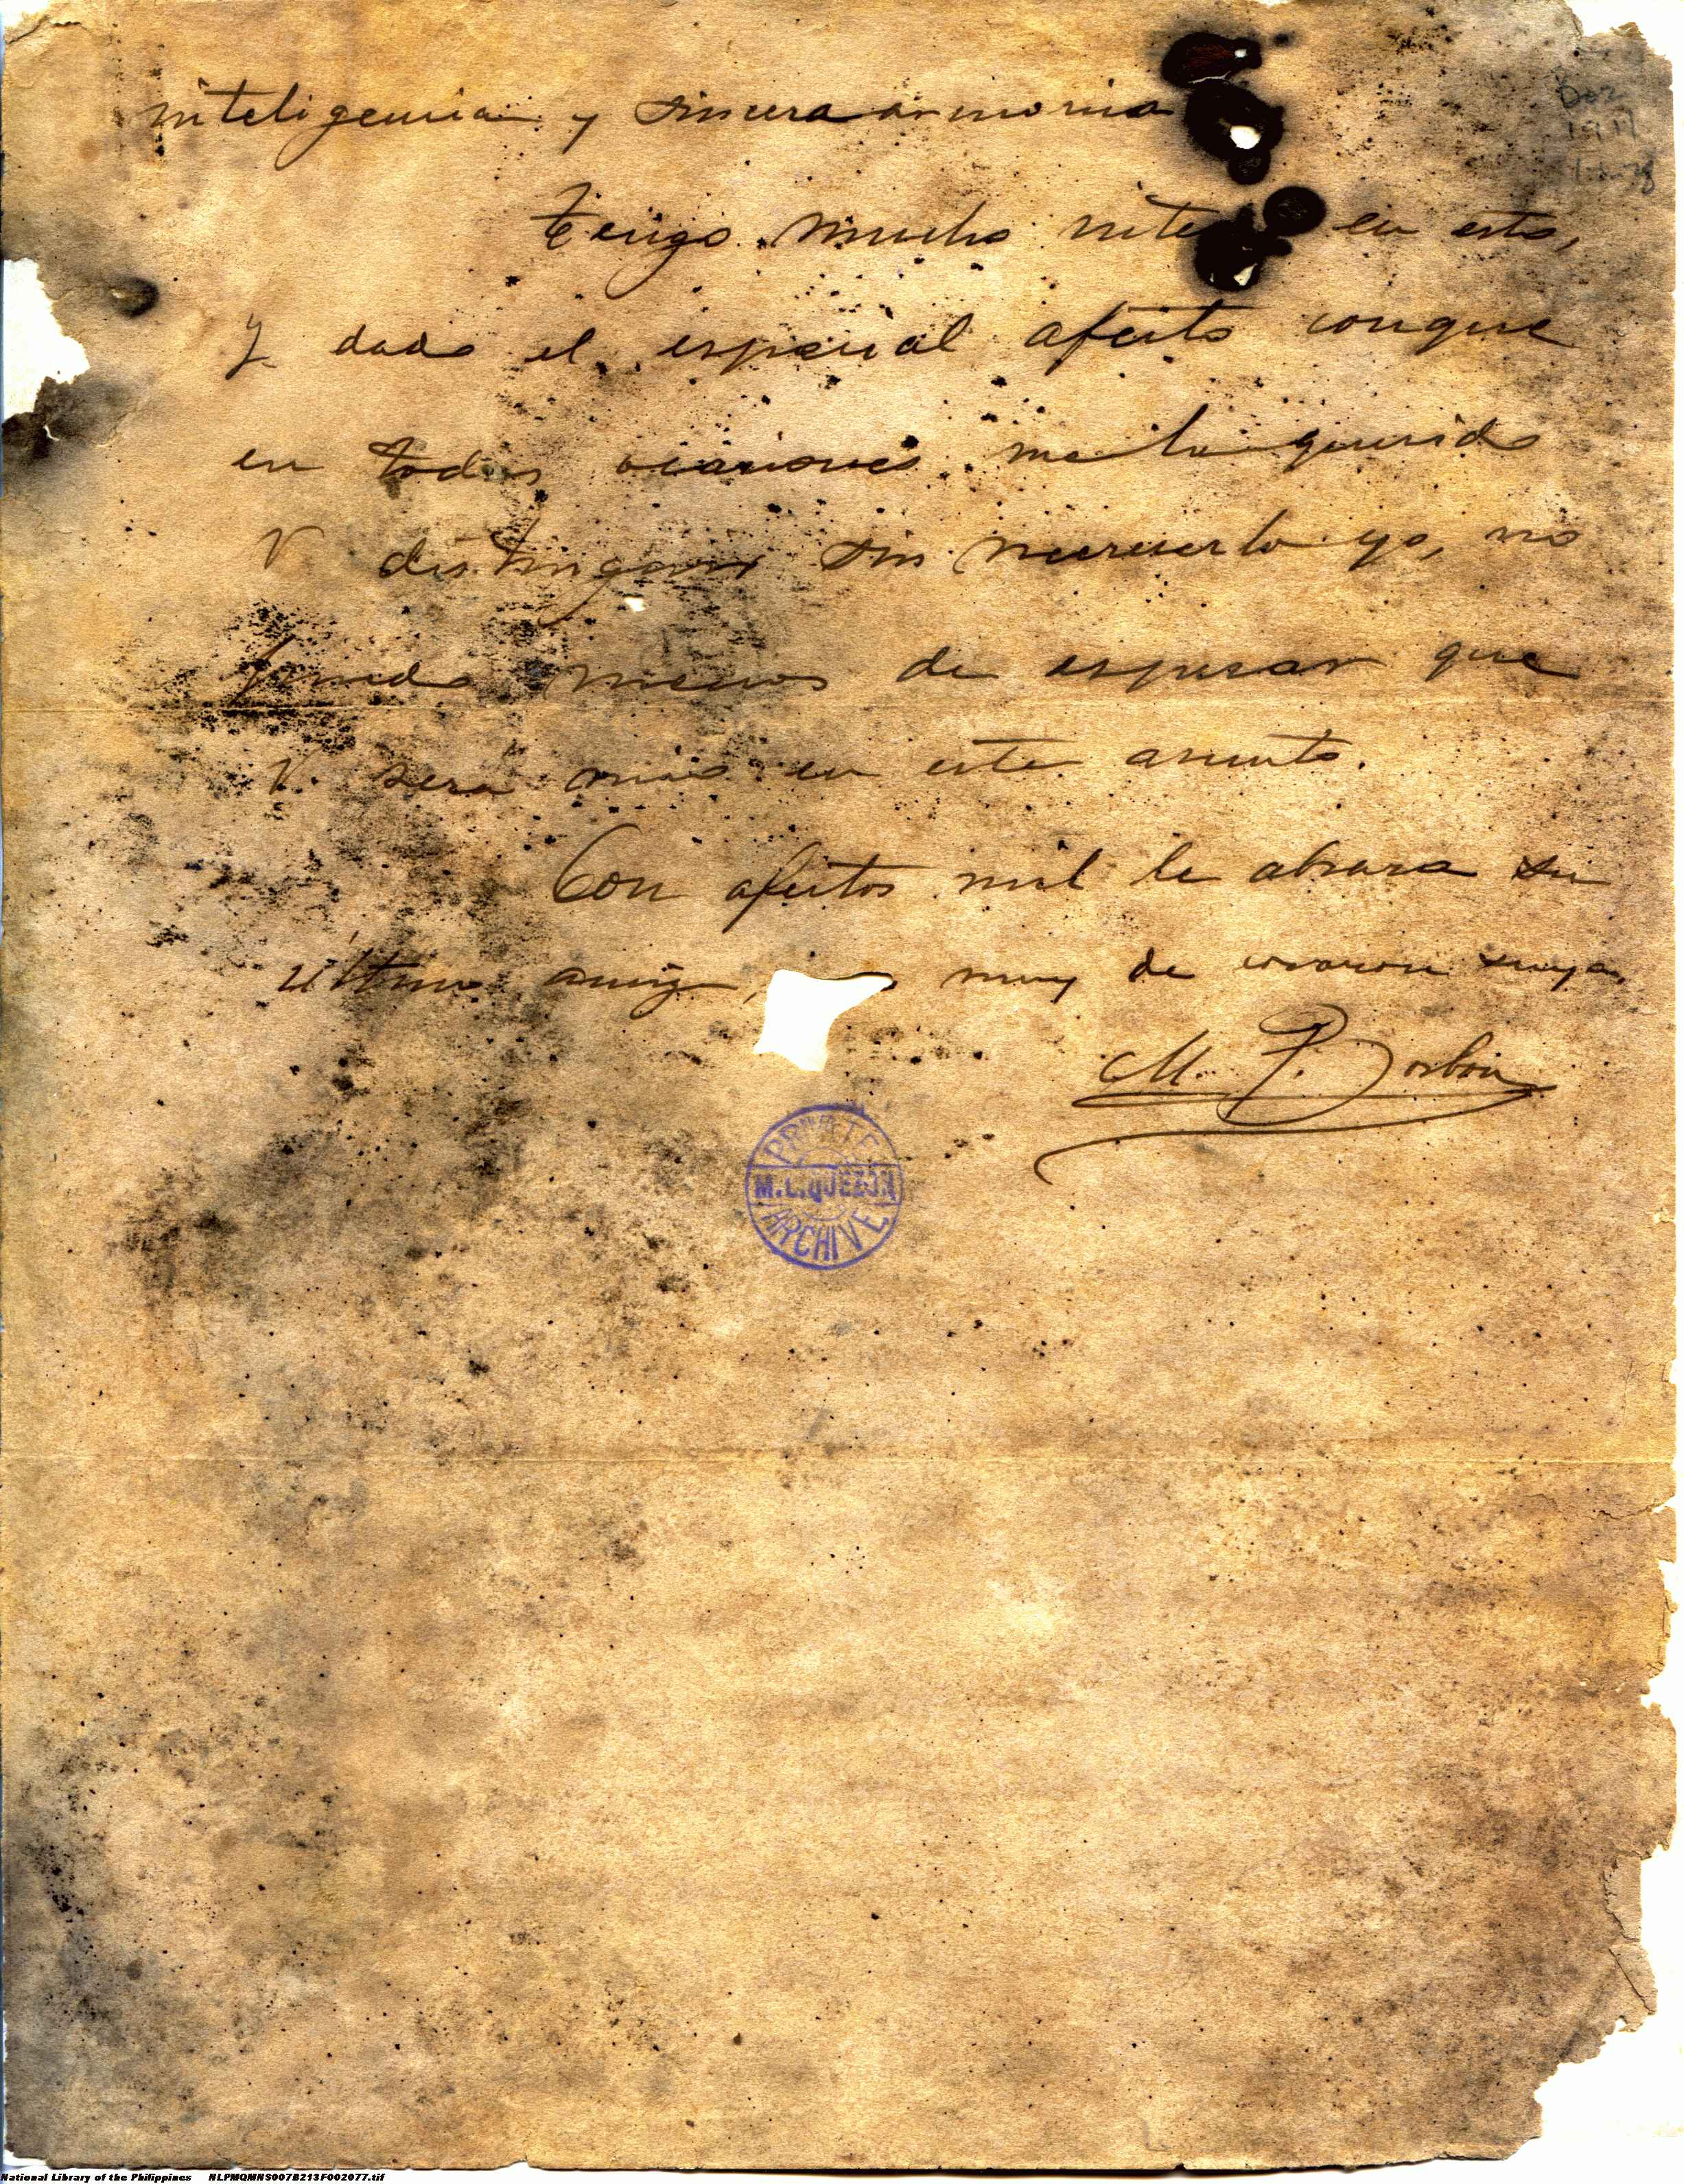 inteligencia y sincera armonia
Dez
1917
Tengo mucho inte en esto,
y dado el especial afecto conque
en todas ocasiones me ha querido
V distinguir sin merecerlo yo, no
puedo menos de esperar que
V. será mio en este asunto.
Con afectos mil le abraza su
último amigo, muy de corazon suyo,
M. P. Borbon
PRIVATE
M.L.QUEZON
ARCHIVE
National Library of the Philippines NLPMQMNS007B213F002077.tif